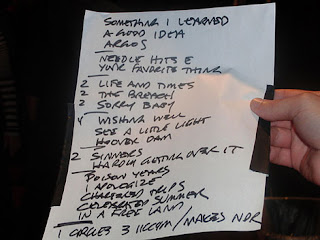 SOMETHING I LEARNED
A GOOD IDEA
ARGOS
NEEDLE HITS E
YOUR FAVORITE THING
2 LIFE AND TIMES
2 THE BREACH
2 SORRY BABY
4 WISHING WELL
SEE A LITTLE LIGHT
HOOVER DAM
2 SINNERS
HARDLY GETTING OVER IT
POISON YEARS
I APOLOGIZE
CHARTERED TRIPS
CELEBRATED SUMMER
IN A FREE LAND
1 CIRCLES 3 / MAKES NO